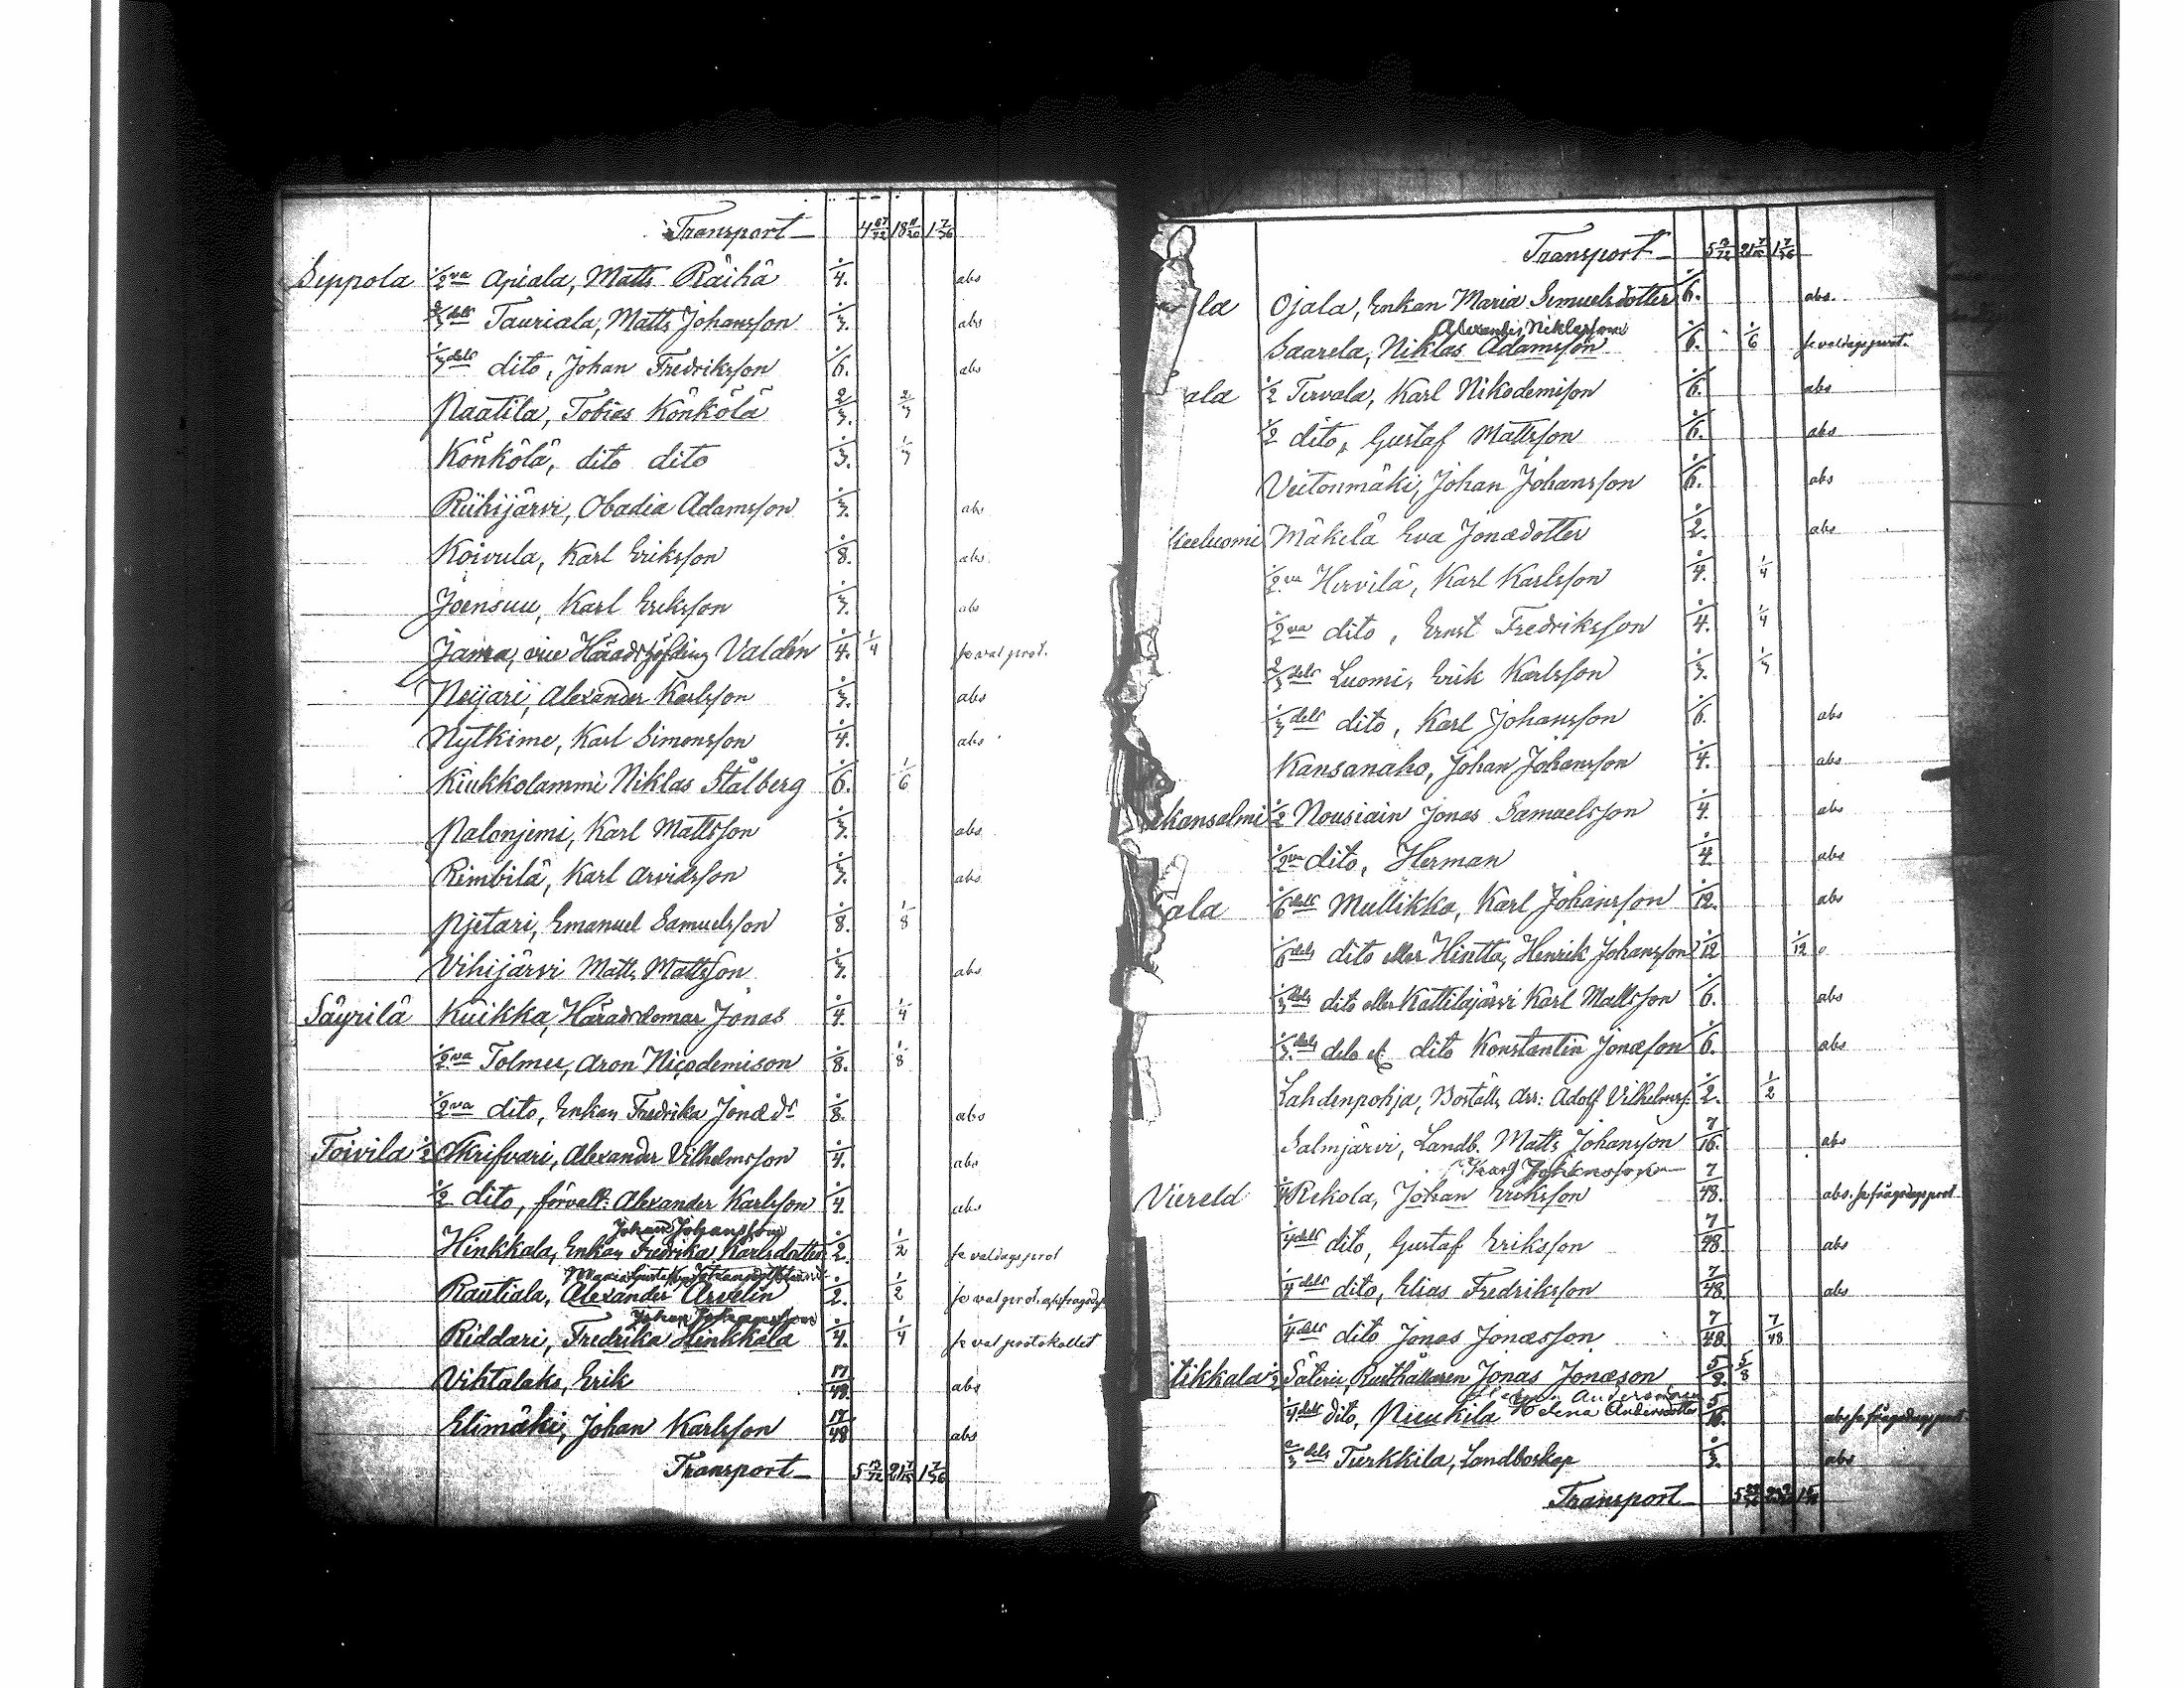 Transport 4 67/72 18 11/20 1 7/36
Seppola 1/2va Apiala, Matts Räihä 1/4. abs
2/3dels Tauriala, Matts Johansson 1/3. abs
1/3dels dito, Johan Fredriksson 1/6. abs
Naatila, Tobias Könkölä 2/3. 2/3
Könkölä, dito dito 1/3. 1/3
Riihijärvi, Obadia Adamsson 1/3. abs
Koivula, Karl Eriksson 1/8. abs
Joensuu, Karl Eriksson 1/3. abs
Jamsa, vice Häradshöfding Valdén 1/4. 1/4 se val prot.
Neijari, Alexander Karlsson 1/3. abs
Nytkime, Karl Simonsson 1/4. abs
Kiukkolammi Niklas Stålberg 1/6. 1/6
Palonjemi, Karl Mattsson 1/3. abs
Rimbilä, Karl Arvidsson 1/3. abs
Pjetari, Emanuel Samuelsson 1/8. 1/8
Vihijärvi Matts Mattsson 1/3. abs
Säyrilä Kuikka, Häradsdomar Jonas 1/4. 1/4
1/2va Tolmee, Aron Nicodemison 1/8. 1/8
1/2va dito, Enkan Fredrika Jonædr 1/8. abs
Toivila 1/2 Skrifvari, Alexander Vilhelmsson 1/4. abs
1/2 dito, förvalt: Alexander Karlsson 1/4. abs
Johan Johansson
Hinkkala, Enkan Fredrika Karlsdotter 1/2. 1/2 se valdagsprot
Rautiala, Alexander Arvelin 1/2. 1/2 se val prot.
Johan Johansson
Riddari, Fredrika Hinkkala 1/4. 1/4 se val protokollet
Vihtalaks, Erik 17/48. abs
Elimäki, Johan Karlsson 17/48 abs
Transport
Transport
la Ojala, Enkan Maria Semuelsdotter 1/6. abs.
Alexander Niklasson
Saarela, Niklas Adamsson 1/6. 1/6 se valdagsprot.
ala 1/2 Tervala, Karl Nikodemison 1/6. abs
1/2 dito, Gustaf Mattsson 1/6. abs
Veitonmäki, Johan Johansson 1/6. abs
keeluomi Mäkelä Eva Jonædotter 1/2. abs
1/2va Hirvilä, Karl Karlsson 1/4. 1/4
1/2va dito, Ernst Fredriksson 1/4. 1/4
2/3dels Luomi, Erik Karlsson 1/3. 1/3
1/3dels dito, Karl Johansson 1/6. abs
Kansanaho, Johan Johansson 1/4. abs
kansalmi 1/2 Nousiain Jonas Samuelsson 1/4. abs
1/2va dito, Herman 1/4 abs
ala 1/6dels Mullikka, Karl Johansson 1/12. abs
1/6dels dito eller Hietta, Henrik Johansson 1/12 1/12
1/3dels dito eller Kattilajärvi Karl Mattsson 1/6. abs
1/3dels dito dito Konstantin Jonæson 1/6. abs
Lahdenpohja, Boställs Arr: Adolf Vilhelmss. 1/2. 1/2
Salmjärvi, Landb. Matts Johansson 7/16. abs
Karl Johansson
Viereld 1/4 Rekola, Johan Eriksson 7/48. abs. se frågedagsprot
1/4dels dito, Gustaf Eriksson 7/48. abs
1/4dels dito, Elias Fredriksson 7/48. abs
1/4dels dito Jonas Jonæsson 7/48. 7/48
tikkala Säteri, Rusthållaren Jonas Jonæson 5/8. 5/8
1/4dels dito, Niukkila Helena Andersdotter 5/16. abs se frågedagsprot
2/3dels Turkkila, Landboskap 1/3. abs
Transport